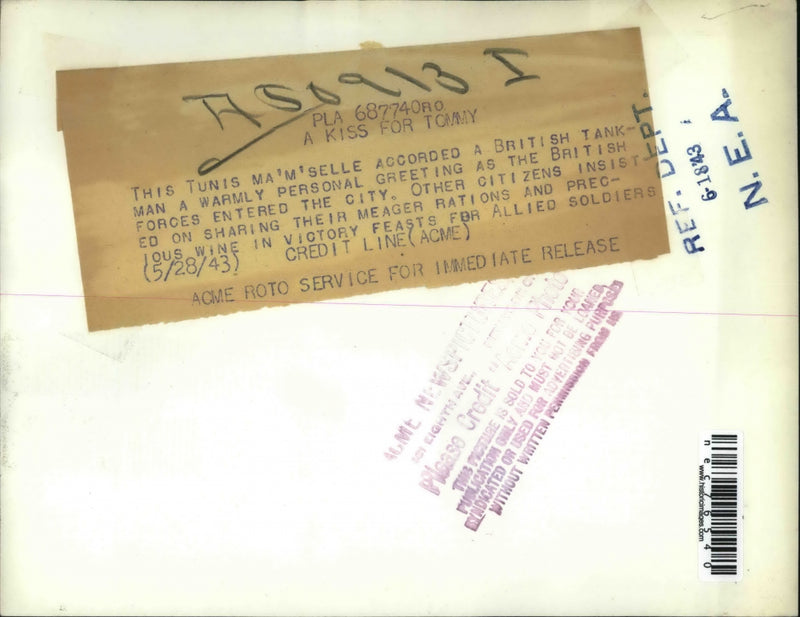 PLA 687740RO
A KISS FOR TOMMY
THIS TUNIS MA'M'SELLE ACCORDED A BRITISH TANK-
MAN A WARMLY PERSONAL GREETING AS THE BRITISH
FORCES ENTERED THE CITY. OTHER CITIZENS INSIST-
ED ON SHARING THEIR MEAGER RATIONS AND PREC-
IOUS WINE IN VICTORY FEASTS FOR ALLIED SOLDIERS
(5/28/43) CREDIT LINE(ACME)
ACME ROTO SERVICE FOR IMMEDIATE RELEASE
REF. DEPT.
6-1843
N.E.A.
ACME NEWSPICTURES
EIGHTH AVE.,
Please Credit "ACME Photo
THIS PICTURE IS SOLD TO YOU FOR YOUR
PUBLICATION ONLY AND MUST NOT BE LOANED
SYNDICATED OR USED FOR ADVERTISING PURPOSES
WITHOUT WRITTEN PERMISSION FROM US
nec76540
www.historicimages.com